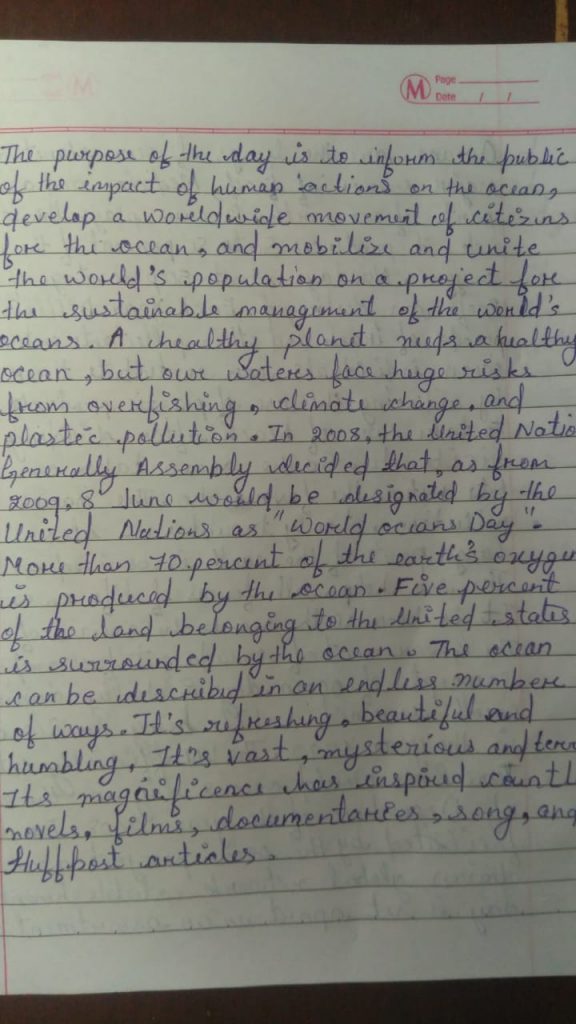 M Page
Date / /
The purpose of the day is to inform the public
of the impact of human actions on the ocean,
develop a worldwide movement of citizens
for the ocean, and mobilize and unite
the world's population on a project for
the sustainable management of the world's
oceans. A healthy planet needs a healthy
ocean, but our waters face huge risks
from overfishing, climate change, and
plastic pollution. In 2008, the United Natio
Generally Assembly decided that, as from
2009, 8 June would be designated by the
United Nations as "World ocians Day".
More than 70 percent of the earth's oxyge
is produced by the ocean. Five percent
of the land belonging to the United states
is surrounded by the ocean. The ocean
can be described in an endless number
of ways. It's refreshing, beautiful and
humbling, It's vast, mysterious and terr
Its magnificence has inspired countl
novels, films, documentaries, song, and
Huffpost articles.